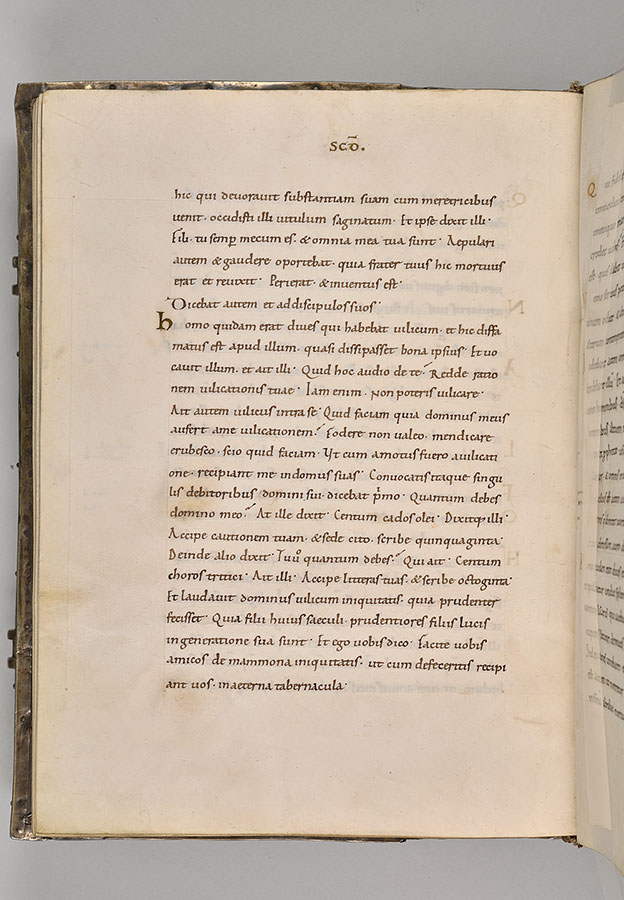 SCD̄.
hic qui devoravit substantiam suam cum meretricibus
uenit· occidisti illi uitulum saginatum· Et ipse dixit illi·
Fili· tu semp̄ mecum es· & omnia mea tua sunt· Aepulari
autem & gaudere oportebat· quia frater tuus hic mortuus
erat et revixit· Perierat· & inventus est·
Dicebat autem et ad discipulos suos·
homo quidam erat dives qui habebat uilicum· et hic diffa
matus est apud illum· quasi dissipasset bona ipsius· Et uo
cauit illum· et ait illi· Quid hoc audio de te· Redde ratio
nem uilicationis tuae· Iam enim· non poteris uilicare·
Ait autem uilicus intra se· Quid faciam quia dominus meus
aufert ame uilicationem· Fodere non ualeo· mendicare
erubesco· scio quid faciam· Ut cum amotus fuero auilicati
one· recipiant me indomus suas· Convocatis itaque singu
lis debitoribus domini sui· dicebat p̄mo· Quantum debes
domino meo· At ille dixit· Centum cados olei· Dixitq; illi·
Accipe cautionem tuam· & sede cito· scribe quinquaginta·
Deinde alio dixit· Tu u͛o quantum debes· Qui ait· Centum
choros tritici· Ait illi· Accipe litteras tuas· & scribe octoginta·
Et laudavit dominus uilicum iniquitatis· quia prudenter
fecisset· Quia filii huius saeculi· prudentiores filiis lucis
in generatione sua sunt· Et ego uobis dico· Facite uobis
amicos de mammona iniquitatis· ut cum defeceritis recipi
ant uos· in aeterna tabernacula·